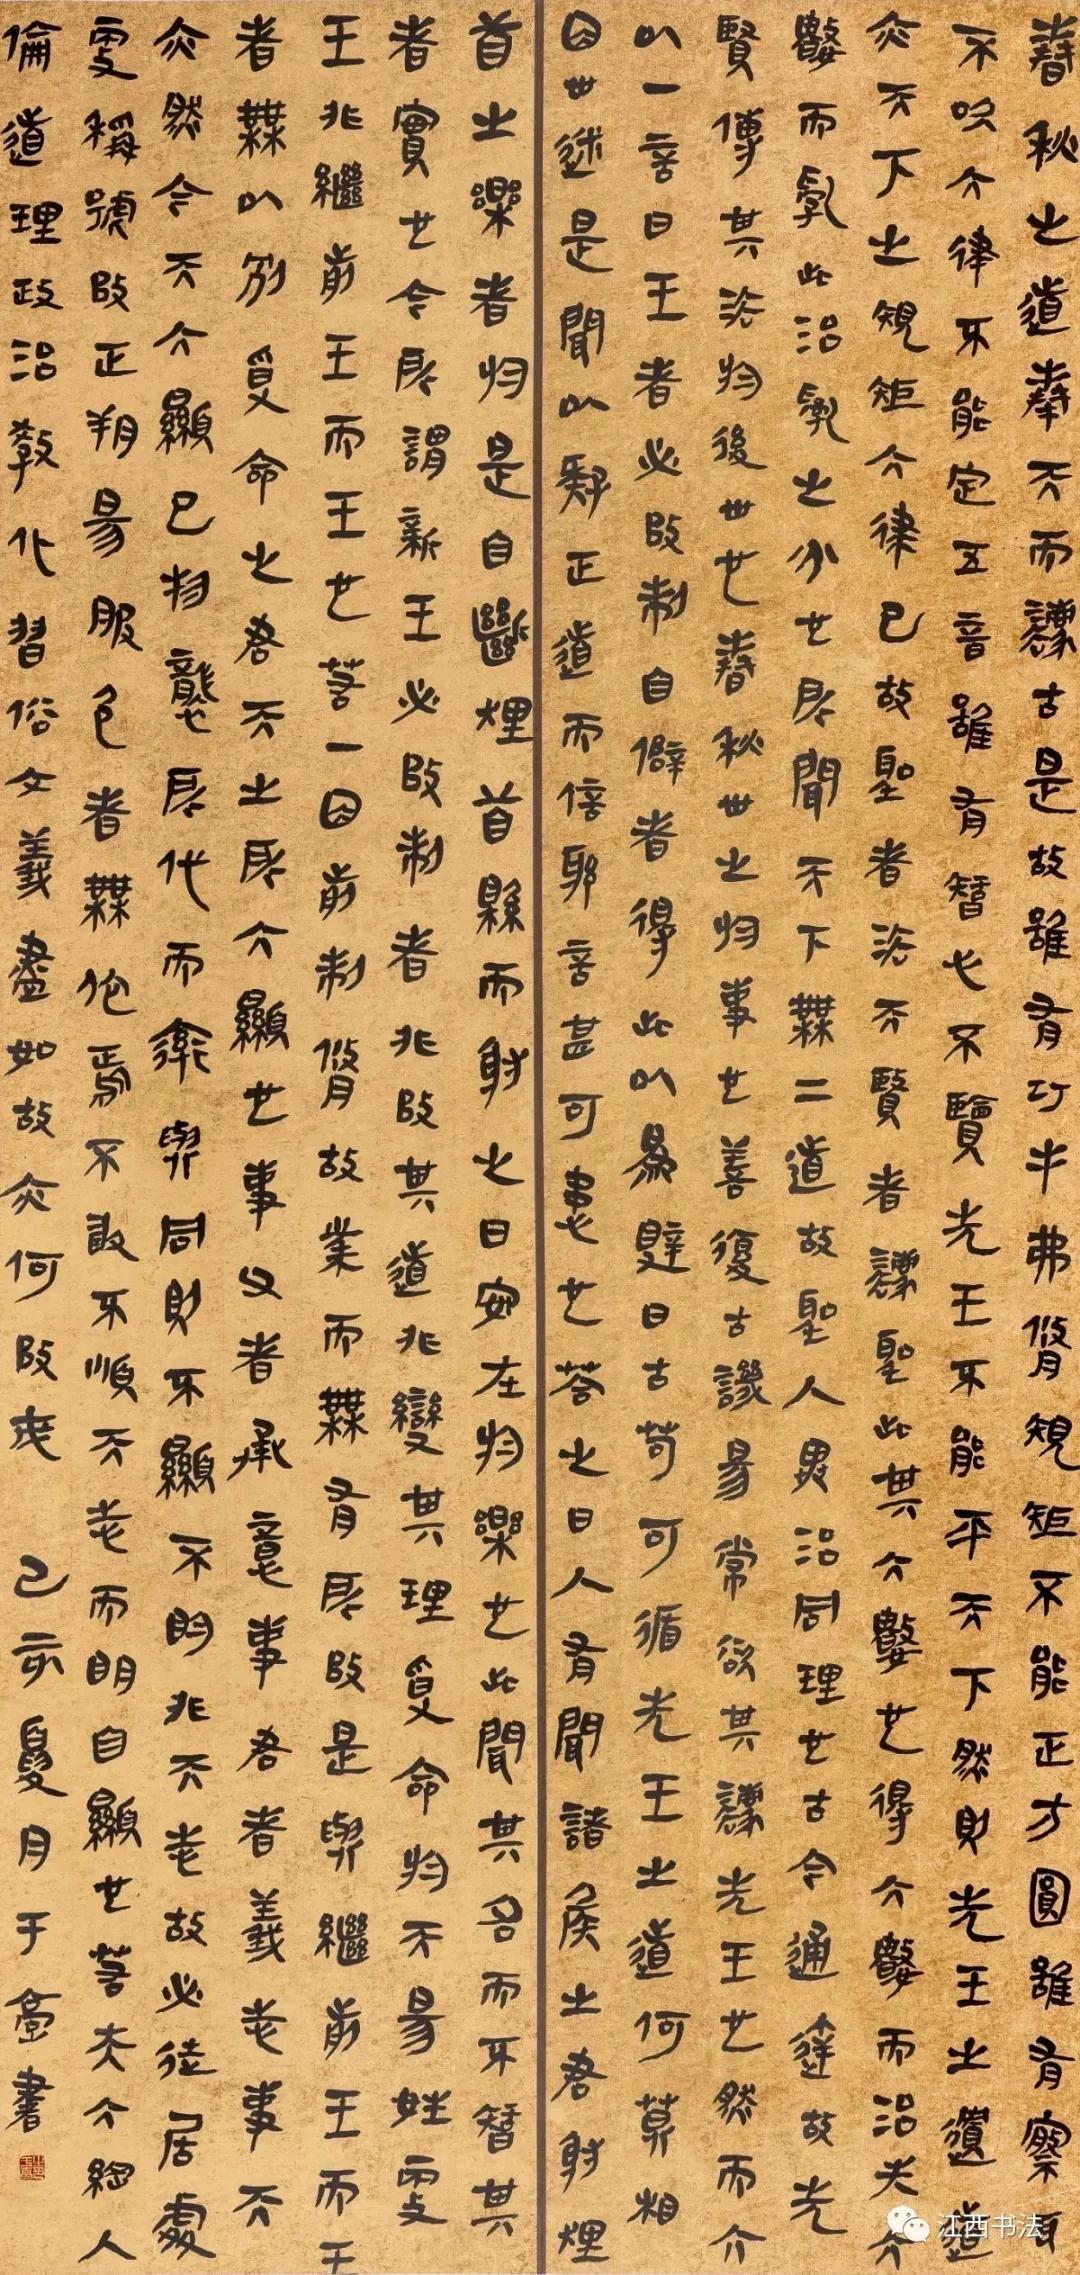 春秋之道奉天而法古是故雖有巧手弗修規矩不能正方圓雖有察耳
不吹六律不能定五音雖有智心不覽先王不能平天下然則先王之遺道
亦天下之規矩六律已故聖者法天賢者法聖此其大數也得大數而治失大
數而亂此治亂之分也所聞天下無二道故聖人異治同理也古今通達故先
賢傳其法於後世也春秋世之於事也善復古譏易常欲其法先王也然而介
以一言曰王者必改制自僻者得此以為辟曰古苟可循先王之道何莫相
因世迷是聞以疑正道而信邪言甚可患也答之曰人有聞諸侯之君射貍
首之樂者於是自斷貍首縣而射之曰安在於樂也此聞其名而不智其
者實也今所謂新王必改制者非改其道非變其理受命於天易姓更
王非繼前王而王也若一因前制修故業而無有所改是與繼前王而王
者無以別受命之君天之所大顯也事父者承意事君者義志事天
亦然今天大顯已物襲所代而率與同則不顯不明非天志故必徙居處
更稱號改正朔易服色者無他焉不敢不順天志而明自顯也若夫大綱人
倫道理政治教化習俗文義盡如故亦何改哉 己亥夏月于書
江西书法